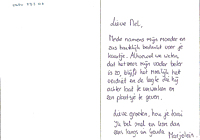 Lieve Mel,
Mede namens mijn moeder en
zus hartelijk bedankt voor je
kaartje. Alhoewel we weten,
dat het weer mijn vader beter
is zo, blijft het moeilijk het
verdriet en de leegte die hij
achter laat te verwerken en
een plaatsje te geven.
Lieve groeten, hou je taai
Ik bel snel en kom dan
een langs in Gouda
Marjolein.